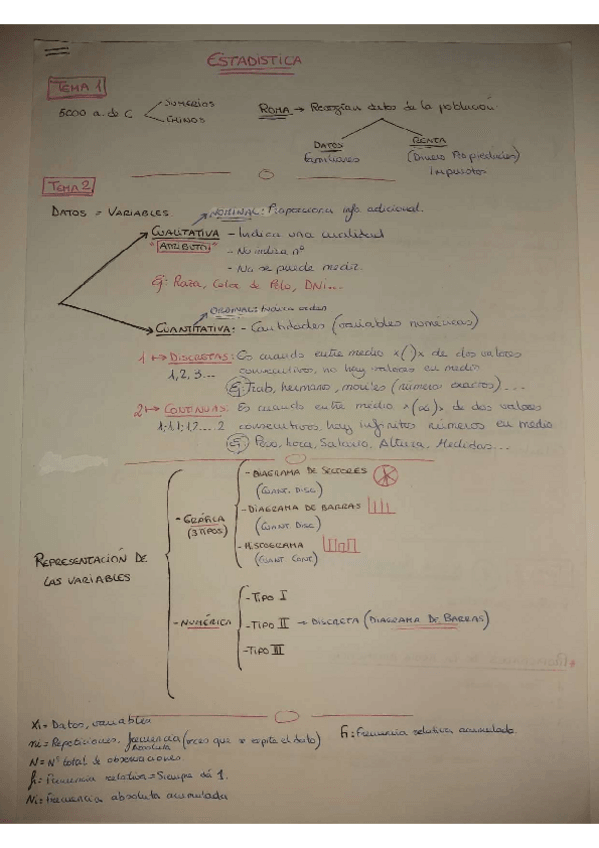 ESTADÍSTICA
TEMA 1
5000 a. de C
SUMERIOS
CHINOS
ROMA → Recogían datos de la población
DATOS
familiares
RENTA
(Dinero Propiedades)
Impuestos
TEMA 2
DATOS = VARIABLES
NOMINAL: Proporciona info adicional.
CUALITATIVA - Indica una cualidad
"ATRIBUTO" - No indica nº
- No se puede medir.
Ej: Raza, Color de Pelo, DNI...
ORDINAL: Indica orden
CUANTITATIVA: - Cantidades (variables numéricas)
1 → DISCRETAS: Es cuando entre medio de dos valores
1, 2, 3... consecutivos, no hay valores en medio
Ej: hermano, (números exactos)...
2 → CONTINUAS: Es cuando entre medio (∞) de dos valores
1; 1,1; 1,2.... 2 consecutivos, hay infinitos números en medio
Ej: Peso, hora, Salario, Altura, Medidas...
REPRESENTACIÓN DE
LAS VARIABLES
- GRÁFICA
(3 TIPOS)
- DIAGRAMA DE SECTORES
(CUANT. DISC.)
- DIAGRAMA DE BARRAS
(CUANT. DISC)
- HISTOGRAMA
(CUANT. CONT)
- NUMÉRICA
- TIPO I
- TIPO II → DISCRETA (DIAGRAMA DE BARRAS)
- TIPO III
xi = Datos, variables
ni = Repeticiones, frecuencia absoluta (veces que se repite el dato)
Fi = Frecuencia relativa acumulada
N = Nº total de observaciones
fi = Frecuencia relativa = Siempre da 1.
Ni = Frecuencia absoluta acumulada